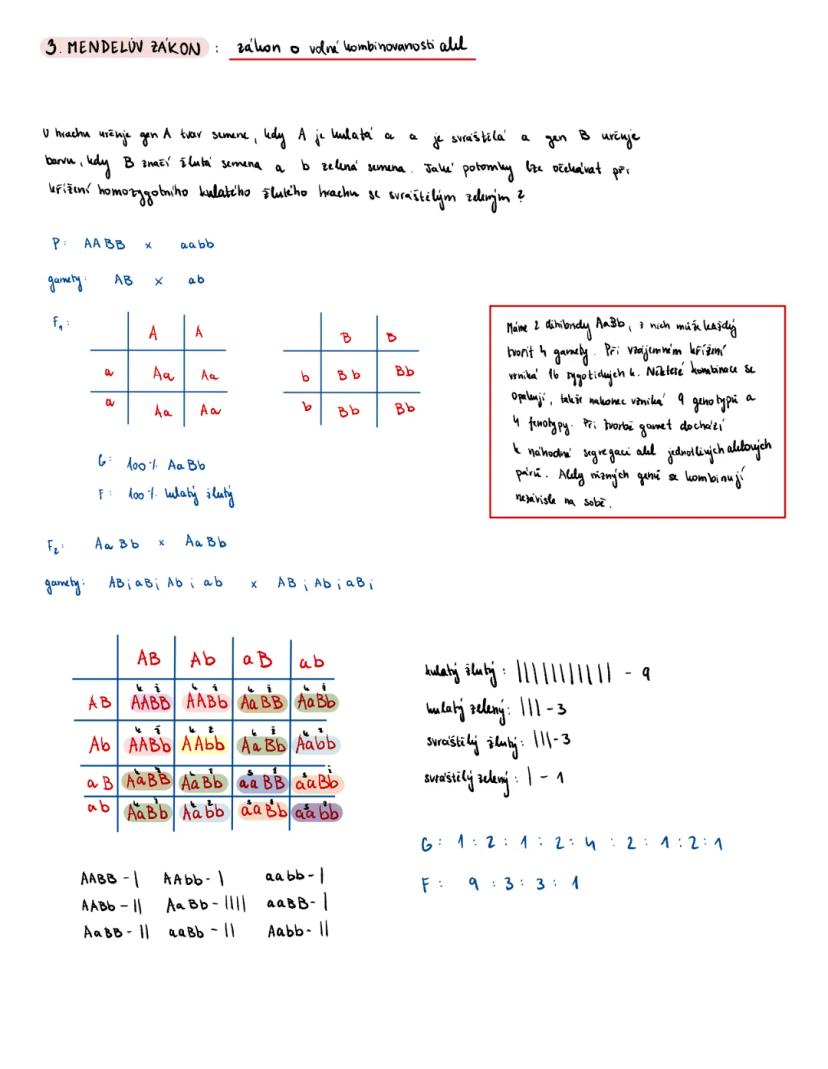 3. MENDELŮV ZÁKON : zákon o volné kombinovanosti alel
U hrachu určuje gen A tvar semene, kdy A je kulatá a a je svraštělá a gen B určuje
barvu, kdy B značí žlutá semena a b zelená semena. Jaké potomky lze očekávat při
křížení homozygotního kulatého žlutého hrachu se svraštělým zeleným?
P: AABB x aabb
gamety: AB x ab
F₁:
A A
a Aa Aa
a Aa Aa
B B
b Bb Bb
b Bb Bb
G: 100% AaBb
F: 100% kulatý žlutý
Máme 2 dihibridy AaBb, z nich může každý
tvořit 4 gamety. Při vzájemném křížení
vzniká 16 zygotických k. Některé kombinace se
opakují, takže nakonec vzniká 9 genotypů a
4 fenotypy. Při tvorbě gamet dochází
k náhodné segregaci alel jednotlivých alelových
párů. Alely různých genů se kombinují
nezávisle na sobě.
F₂: AaBb x AaBb
gamety: AB; aB; Ab; ab x AB; Ab; aB;
AB Ab aB ab
AB AABB AABb AaBB AaBb
Ab AABb AAbb AaBb Aabb
aB AaBB AaBb aaBB aaBb
ab AaBb Aabb aaBb aabb
kulatý žlutý: |||||||||||| - 9
kulatý zelený: ||| - 3
svraštělý žlutý: ||| - 3
svraštělý zelený: | - 1
G: 1 : 2 : 1 : 2 : 4 : 2 : 1 : 2 : 1
F: 9 : 3 : 3 : 1
AABB - | AAbb - | aabb - |
AABb - || AaBb - |||| aaBB - |
AaBB - || aaBb - || Aabb - ||